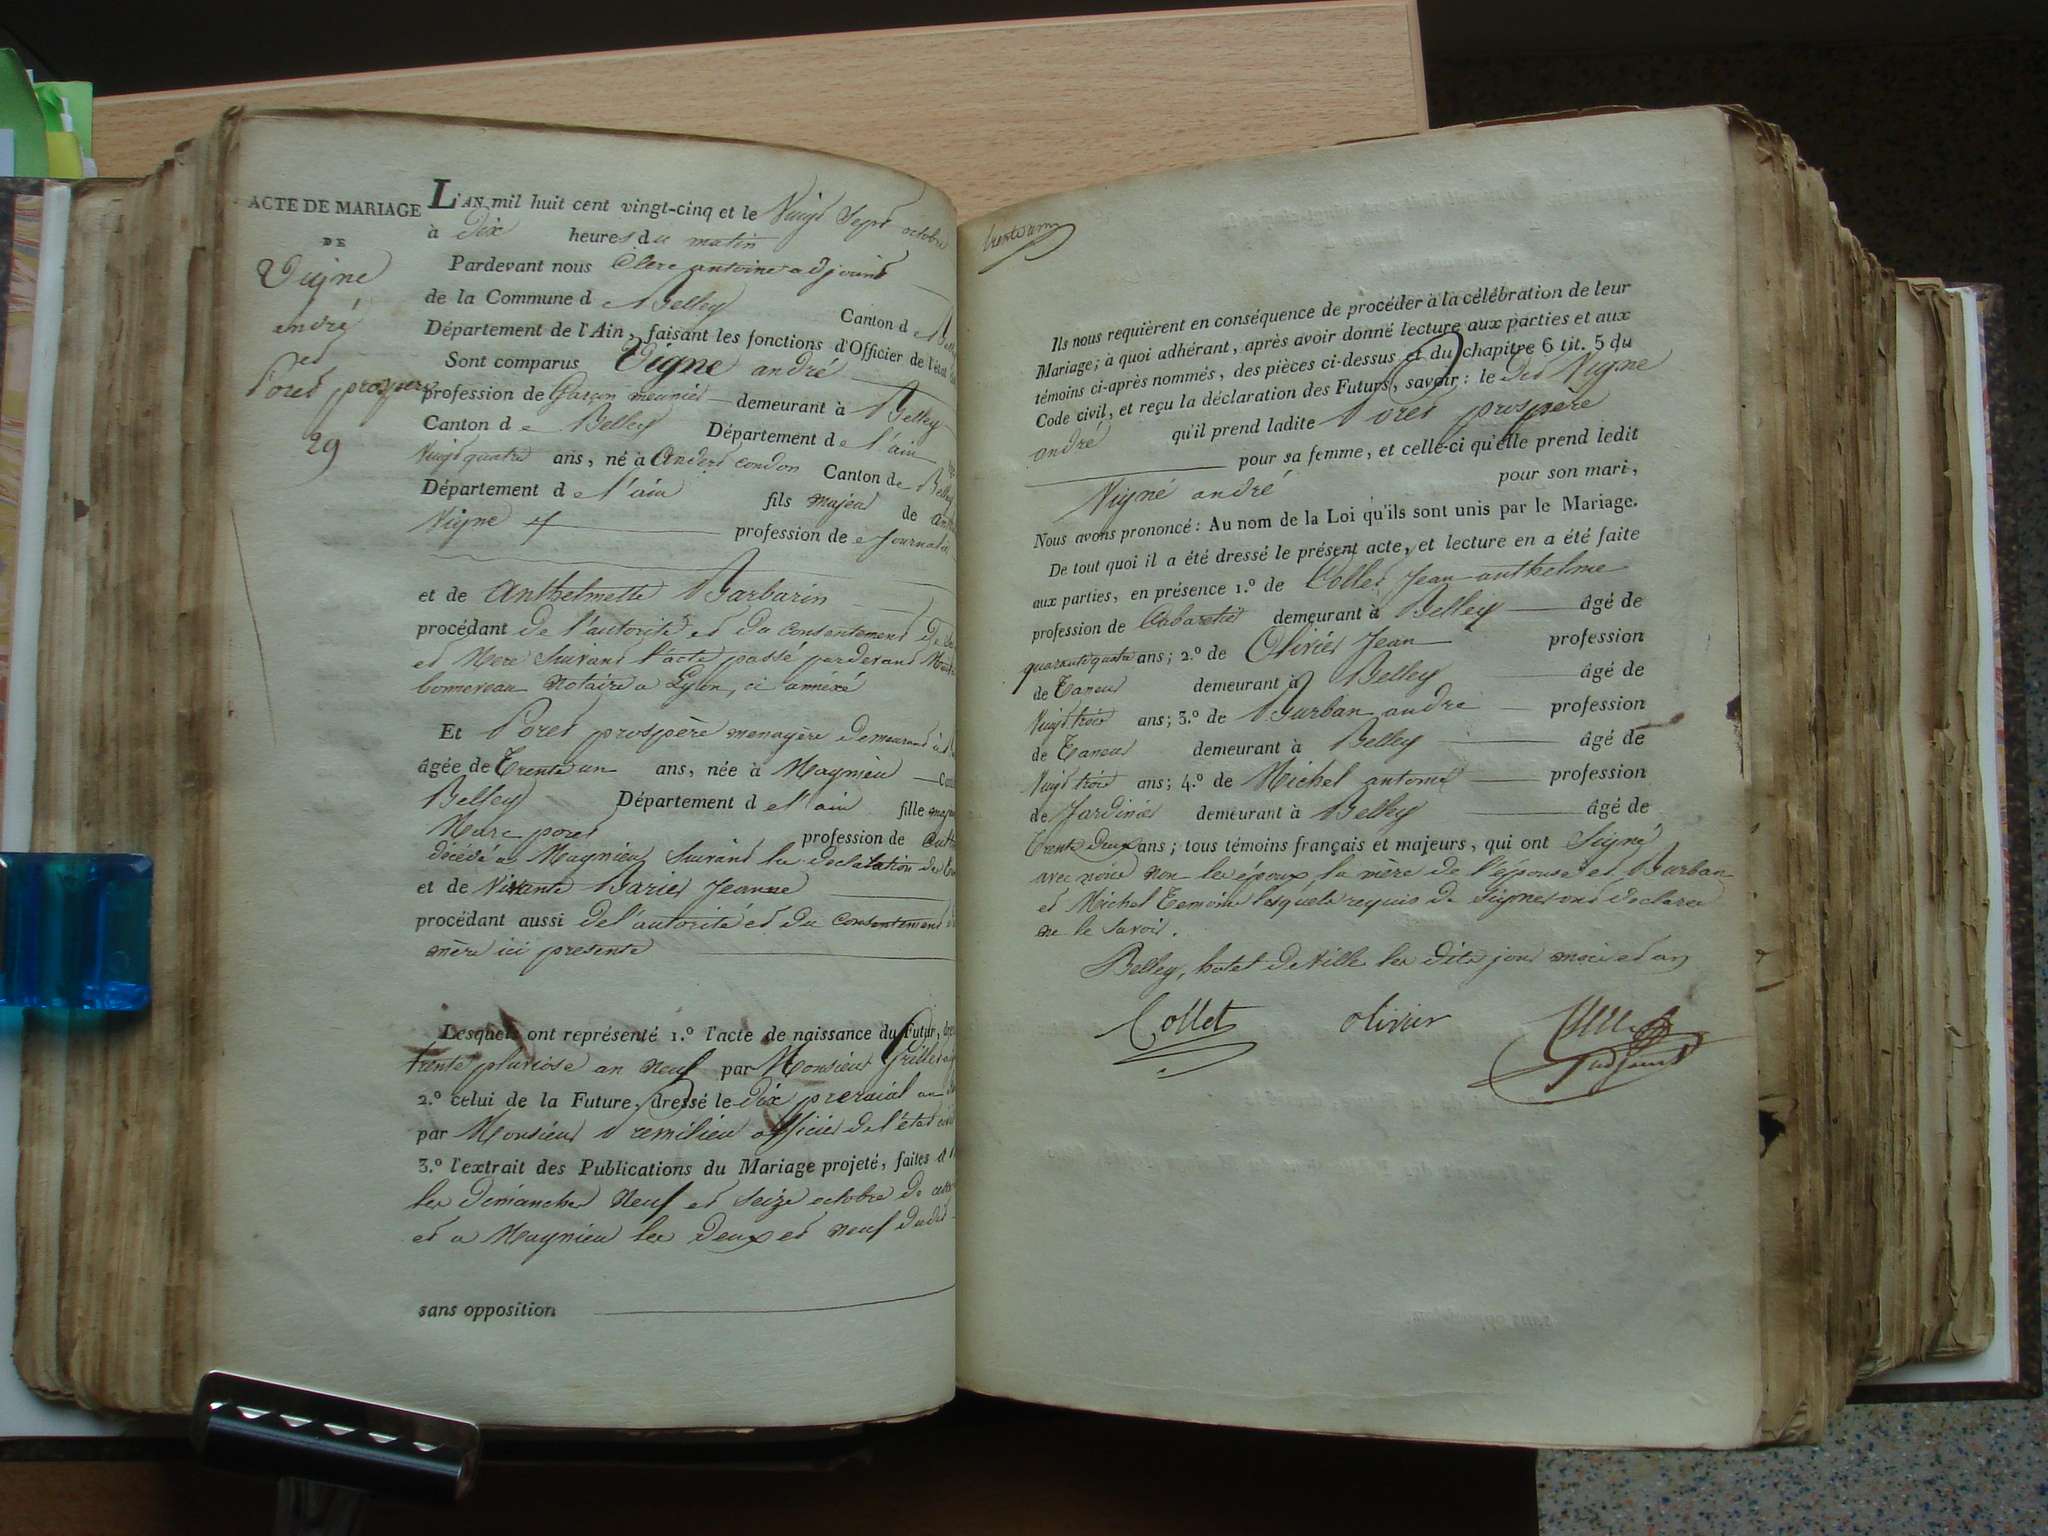 ACTE DE MARIAGE
DE
Vigne
andré
et
Poret prospere
29
L'AN mil huit cent vingt-cinq et le Vingt Sept octobre
à Dix heures du matin
Pardevant nous Clerc antoine adjoint
de la Commune de Belley Canton de
Département de l'Ain, faisant les fonctions d'Officier de l'état
Sont comparus Vigne andré
profession de Garçon meunier demeurant à Belley
Canton de Belley Département de l'ain
Vingt quatre ans, né à Andert condon Canton de Belley
Département de l'ain fils majeur de
Vigne profession de Journalier
et de Anthelmette Barbarin
procédant de l'autorité et du Consentement de
et Mere Suivant l'acte passé pardevant
bonneveau Notaire a Lyon, ci annéxé
Et Poret prospère menagère demeurant à
âgée de Trente un ans, née à Magnieu
Belley Département de l'ain fille
Marc poret profession de
décédé a Magnieu Suivant la declaration de
et de Vivante Barier Jeanne
procédant aussi de l'autorité et du Consentement
mère ici presente
Lesquels ont représenté 1.° l'acte de naissance du Futur,
trente pluviose an Neuf par Monsieur
2.° celui de la Future, dressé le dix preraial an
par Monsieur premilieu officier de l'état
3.° l'extrait des Publications du Mariage projeté, faites
les Dimanches Neuf et Seize octobre de
et a Magnieu les Deux et Neuf dudit
sans opposition
Ils nous requièrent en conséquence de procéder à la célébration de leur
Mariage; à quoi adhérant, après avoir donné lecture aux parties et aux
témoins ci-après nommés, des pièces ci-dessus et du chapitre 6 tit. 5 du
Code civil, et reçu la déclaration des Futurs, savoir: le dit Vigne
andré qu'il prend ladite Poret prospere
pour sa femme, et celle-ci qu'elle prend ledit
Vigné andré pour son mari,
Nous avons prononcé: Au nom de la Loi qu'ils sont unis par le Mariage.
De tout quoi il a été dressé le présent acte, et lecture en a été faite
aux parties, en présence 1.° de Collet Jean anthelme
profession de Cabaretier demeurant à Belley âgé de
quarante quatre ans; 2.° de Olivier Jean profession
de Taneur demeurant à Belley âgé de
Vingt trois ans; 3.° de Burban andre profession
de Taneur demeurant à Belley âgé de
Vingt trois ans; 4.° de Michel antoine profession
de Jardinier demeurant à Belley âgé de
Trente deux ans; tous témoins français et majeurs, qui ont Signé
avec nous Non les époux la mère de l'épouse et Burban
et Michel Temoins lesquels requis de Signer ont déclaré
ne le Savoir.
Belley, hotel de Ville les dits jour mois et an
Collet olivier
adjoint